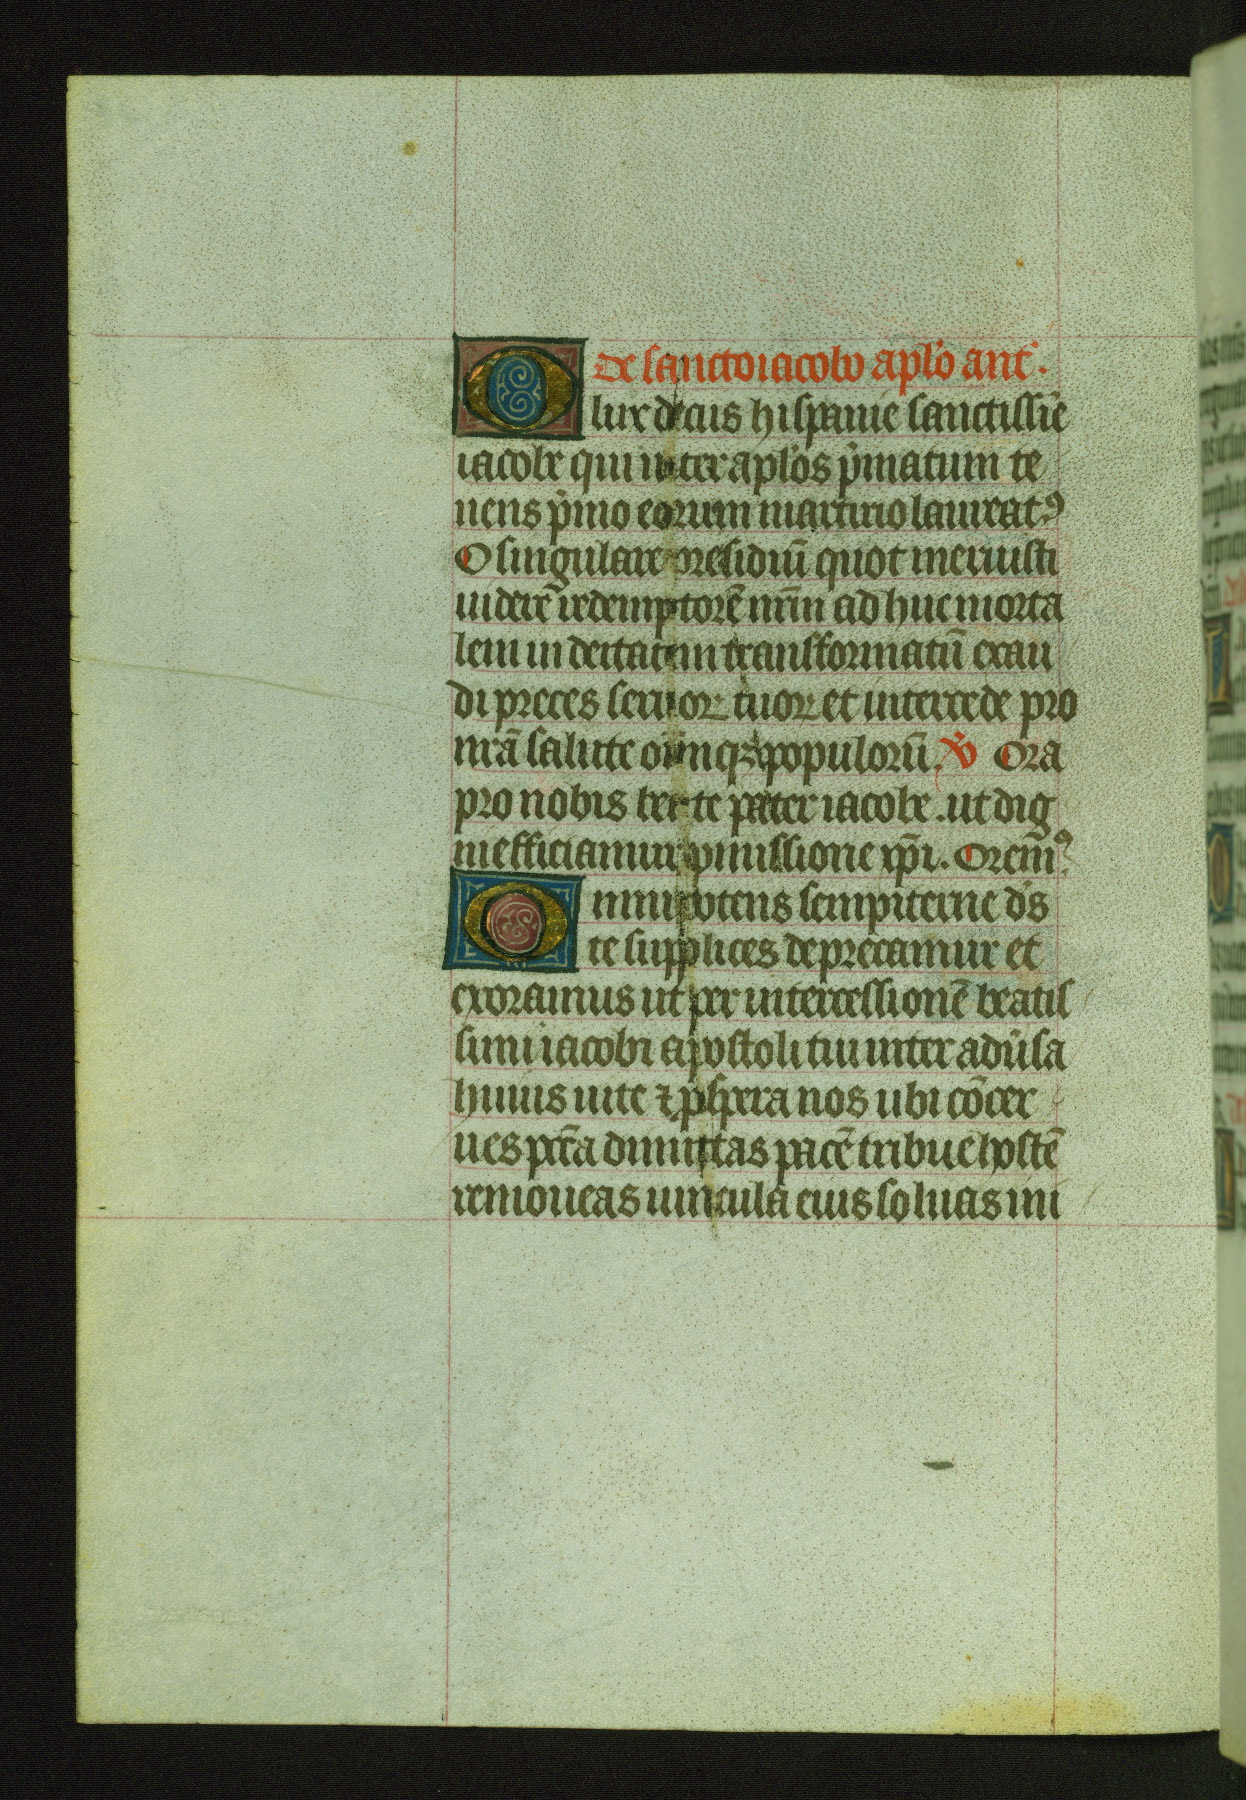 De sancto iacobo aplo ant.
O lux decus hispanie sanctissie
iacobe qui inter aplos pmatum te
nens pmio eorum martirio laureatꝰ
O singulare presidiū quot meruisti
uiderē redemptorē nrm ad huc morta
lem in deitatem transformatū exau
di preces seruoꝝ tuoꝝ et intercede pro
nrā salute omniūqꝫ populorū. ℣ Ora
pro nobis beate pater iacobe. ut dig
ni efficiamur pmissione xp̄i. Oremꝰ
Omnipotens sempiterne ds
te supplices deprecamur et
exoramus ut per intercessionē beatis
simi iacobi apostoli tui inter adūsa
huius uite ⁊ pspera nos ubi cōcer
ues pctā dimittas pacē tribue hostē
remoueas uincula eius soluas ini